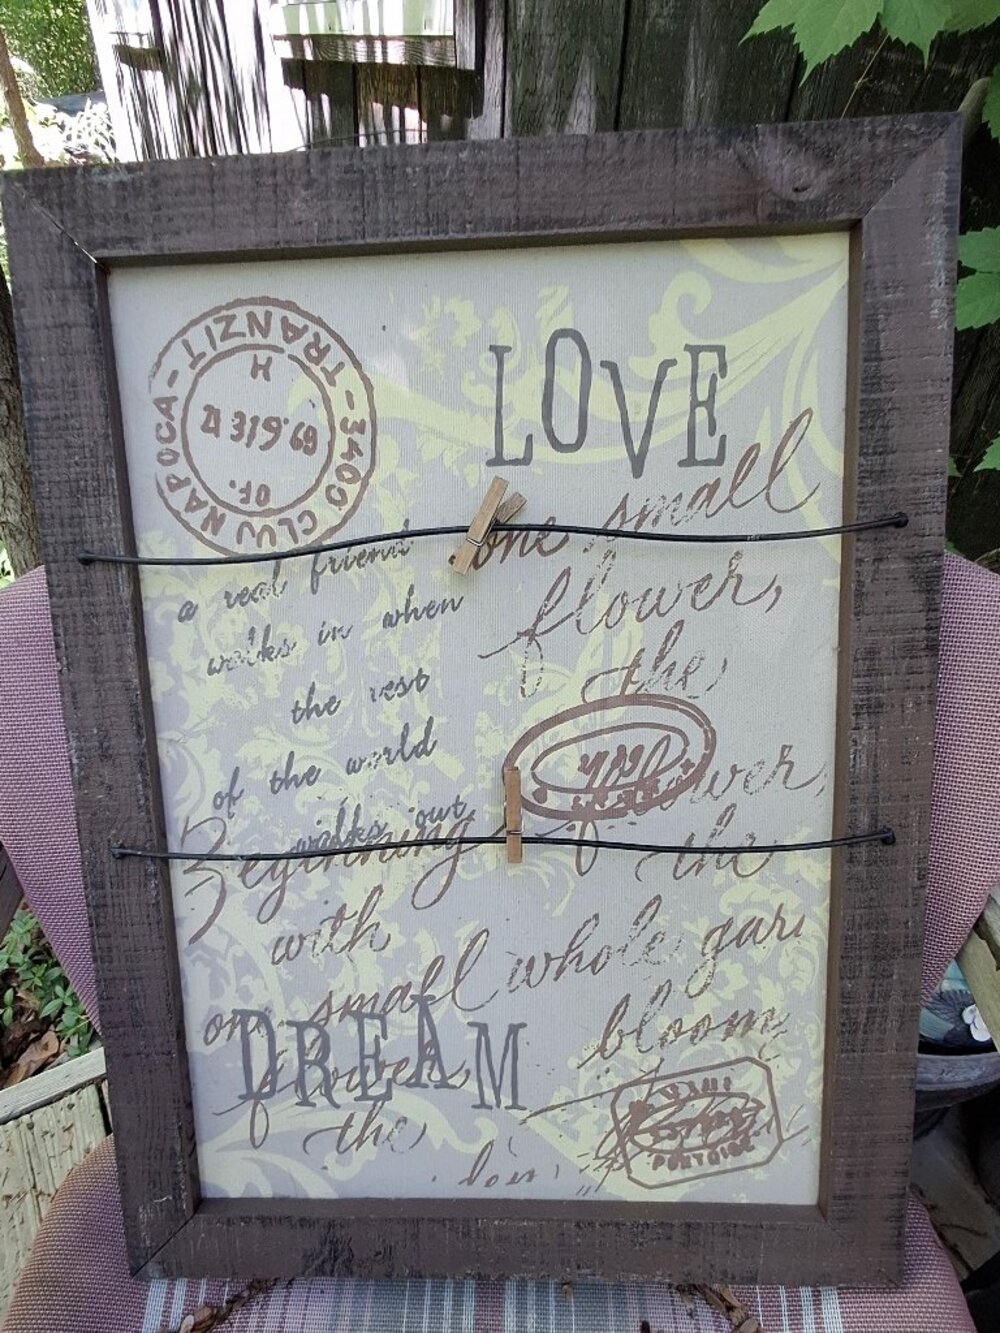 TRANZIT - 3400 CLUJ NAPOCA -
H
319.69
OF.
LOVE
a real friend
walks in when
the rest
of the world
walks out
one small
flower,
the
Beginning
with
one small
flower,
the
of
the
whole gar
bloom
DREAM